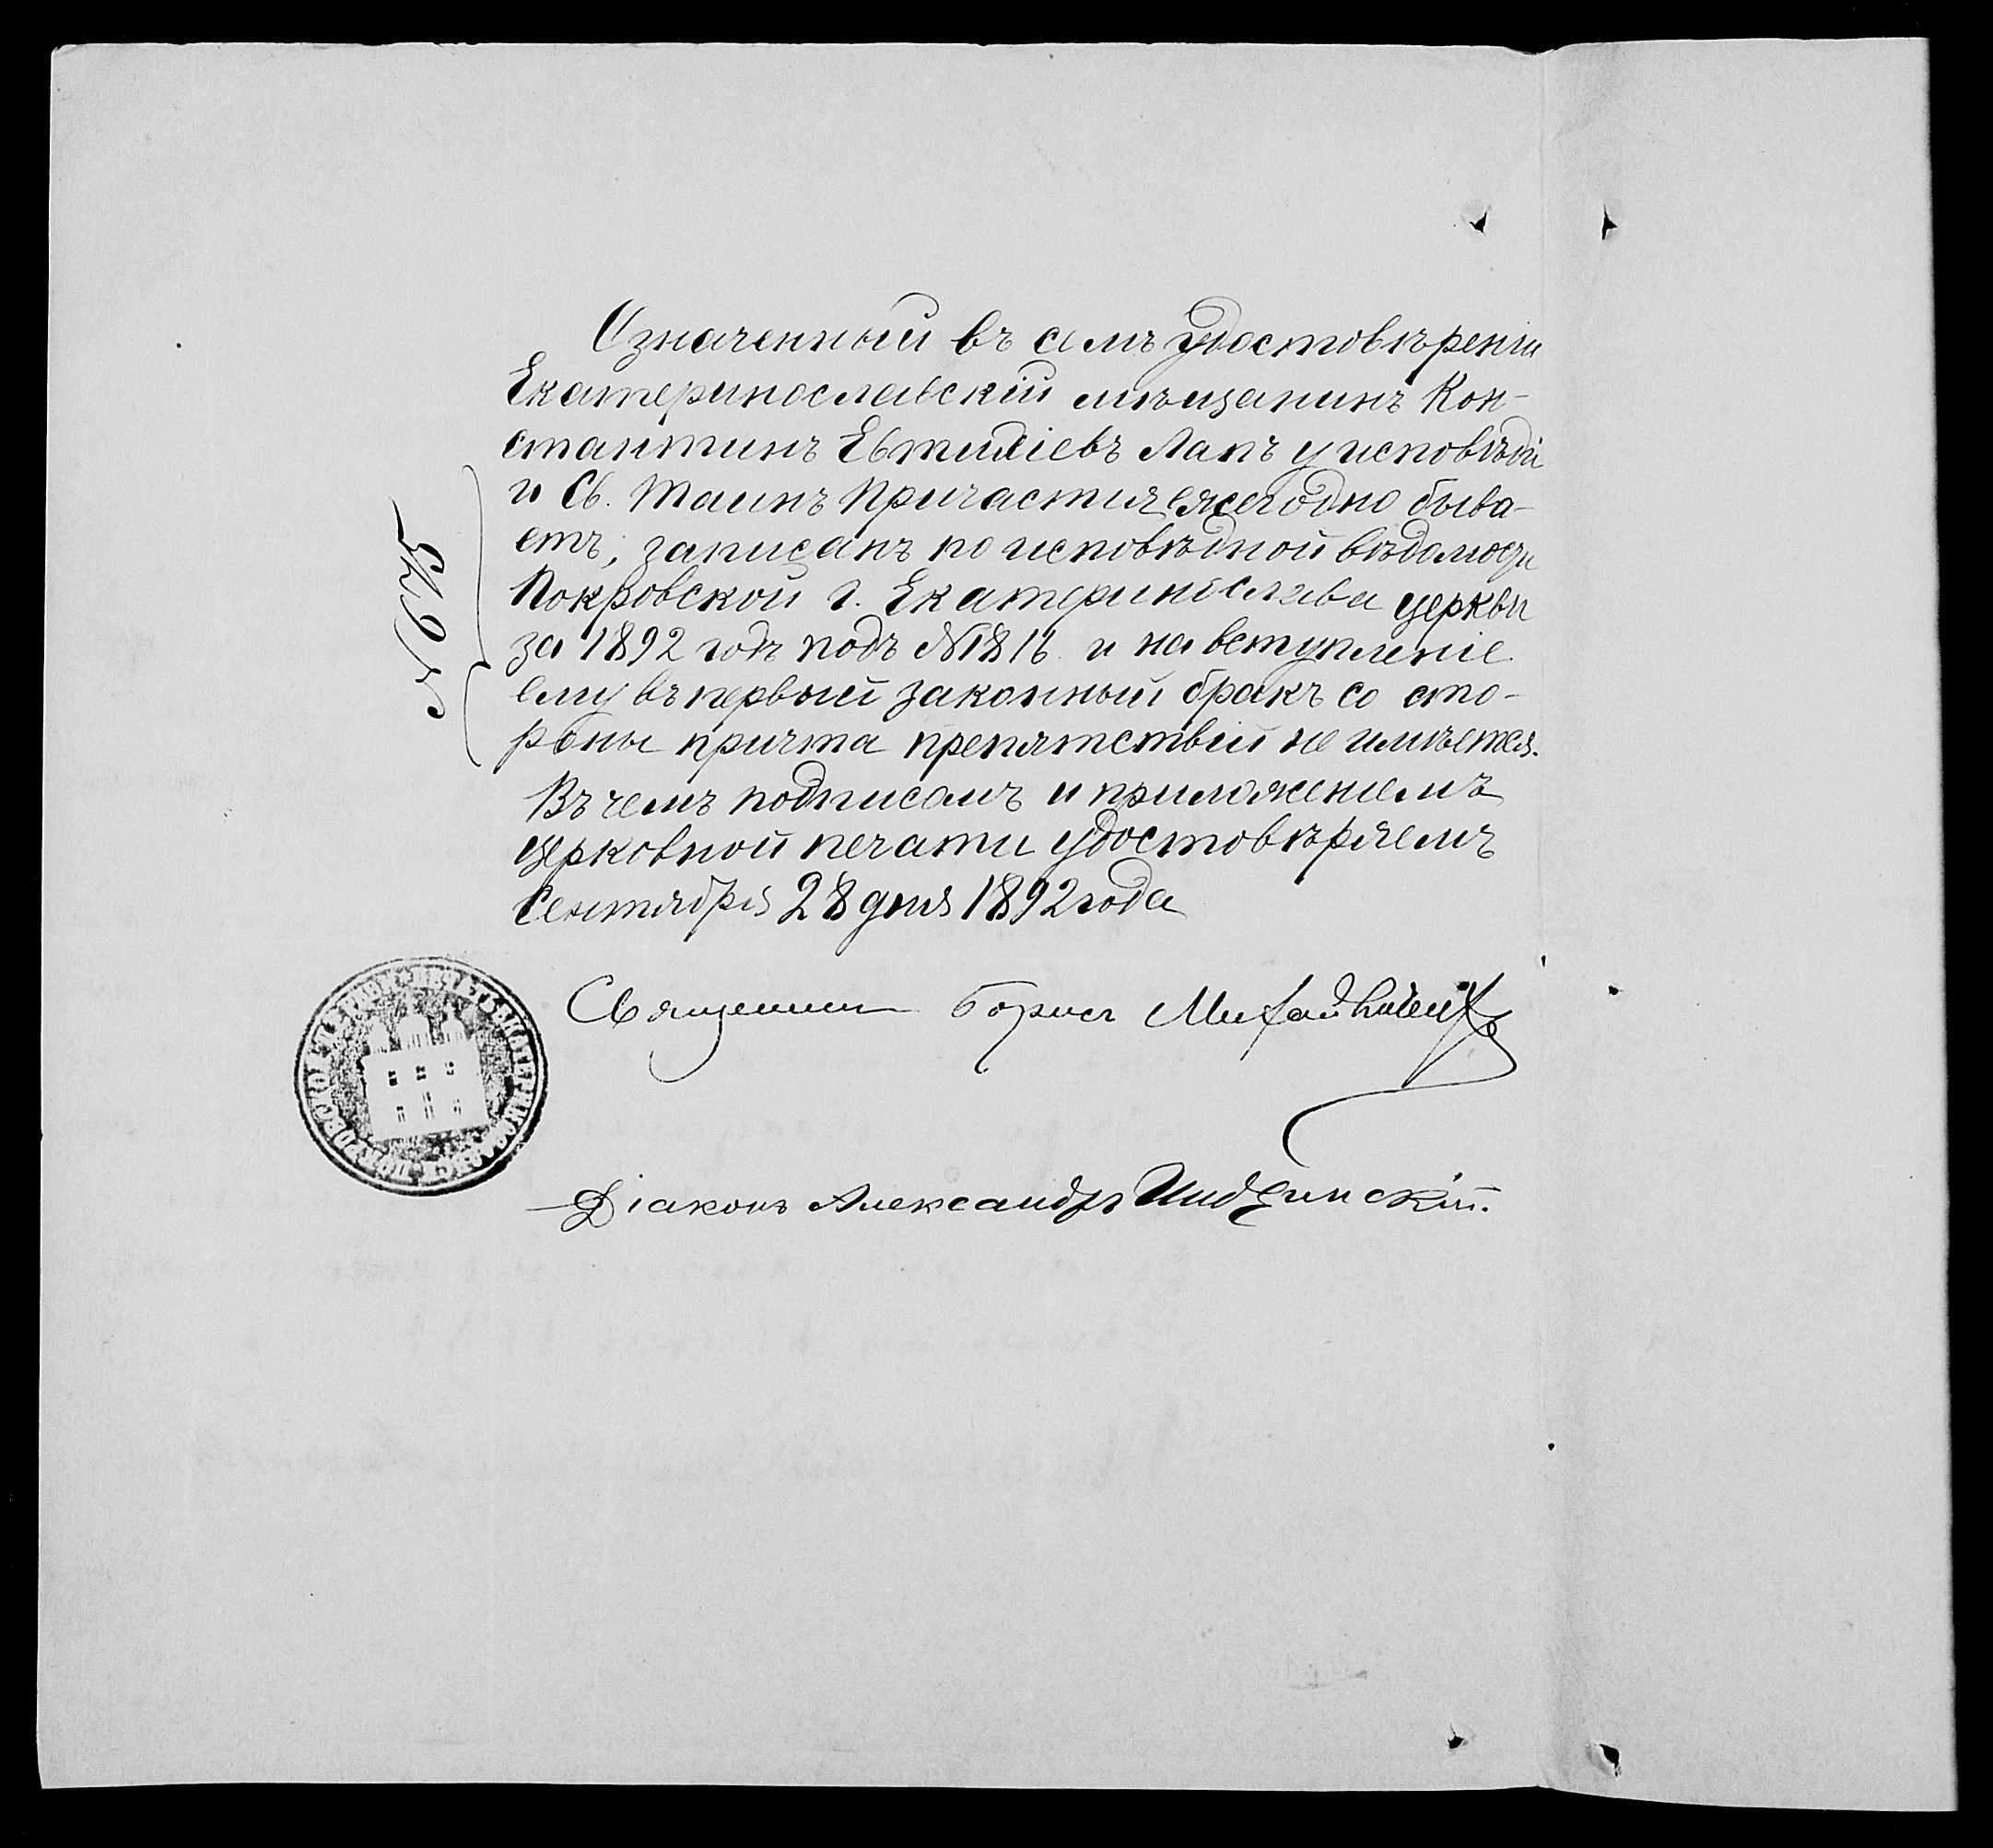 Означенный въ семъ удостовѣреніи
Екатеринославскій мѣщанинъ Кон-
стантинъ Евтихіевъ Лапъ у исповѣди
и Св. Таинъ Причастія ежегодно быва-
етъ, записанъ по исповѣдной вѣдомости
Покровской г. Екатеринослава церкви
за 1892 годъ подъ №1816 и на вступленіе
ему въ первый законный бракъ со сто-
роны причта препятствій не имѣется.
Въ чемъ подписомъ и приложеніемъ
церковной печати удостовѣряемъ
Сентября 28 дня 1892 года
Священникъ Борисъ
Діаконъ Александръ